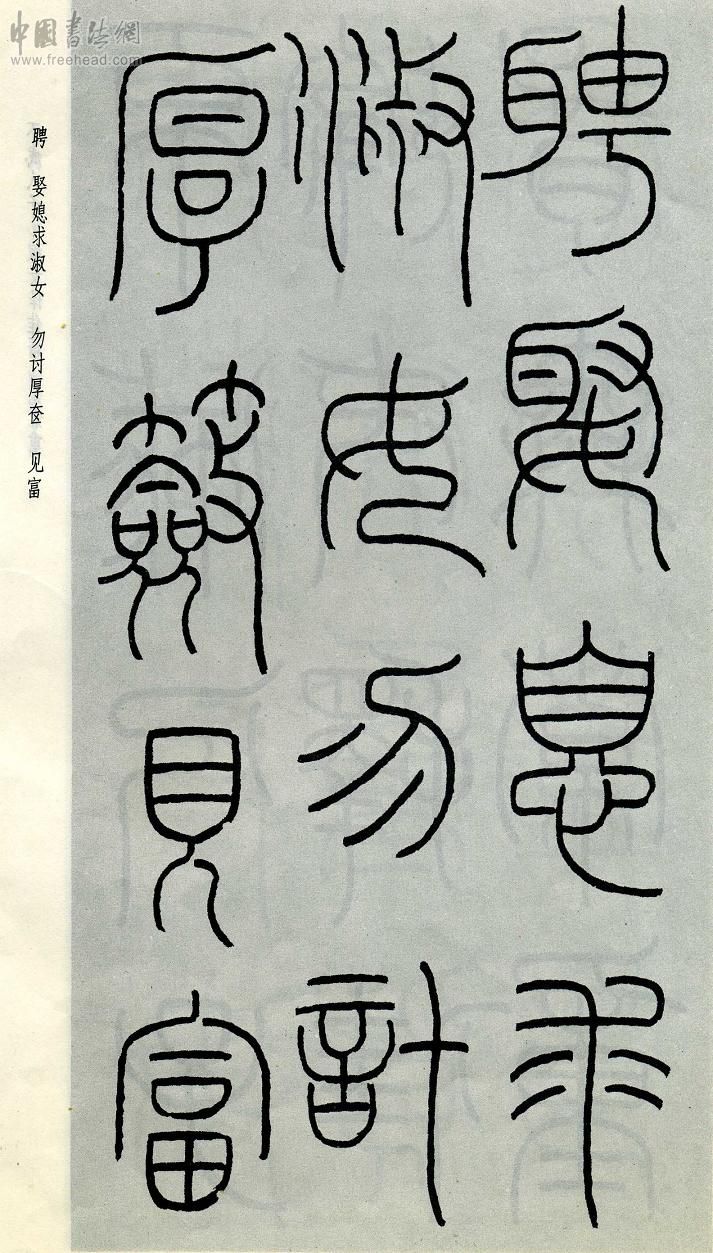 聘娶息求
淑女勿計
厚籢見富
聘 娶媳求淑女 勿讨厚奁 见富
中國書法網
www.freehead.com